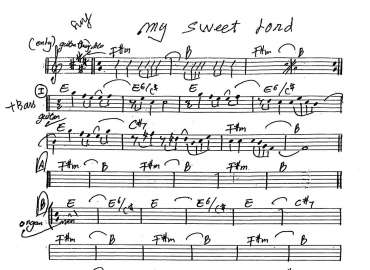 my sweet Lord
(only) guitar F#m B F#m B
I E E6/C# E E6/C#
+Bass
guitar
E C#7 F#m B
A F#m B F#m B F#m B
B E E6/C# E E6/C# E C#7
organ
F#m B F#m B F#m B